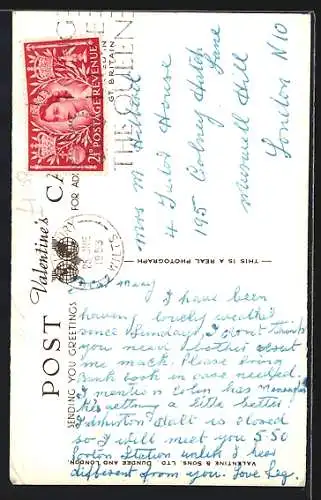 POST CARD
Valentine's
SENDING YOU GREETINGS
FOR ADD
2½D POSTAGE REVENUE
THE QUEEN
GT BRITAIN
1953
WILTS
THIS IS A REAL PHOTOGRAPH
VALENTINE & SONS LTD DUNDEE AND LONDON
Miss M
4 Tudor House
195 Colney Hatch
Lane
Muswell Hill
London N10
Dear Mary
I have been
having lovely weather
since Sunday, I don't think
you need bother about
me mack. Please bring
Bank book in case needed.
I mention Colin has
He's getting a little better
Idmiston Halt is closed
so I will meet you 5-50
Porton Station unless I hear
different from you. Love Reg.